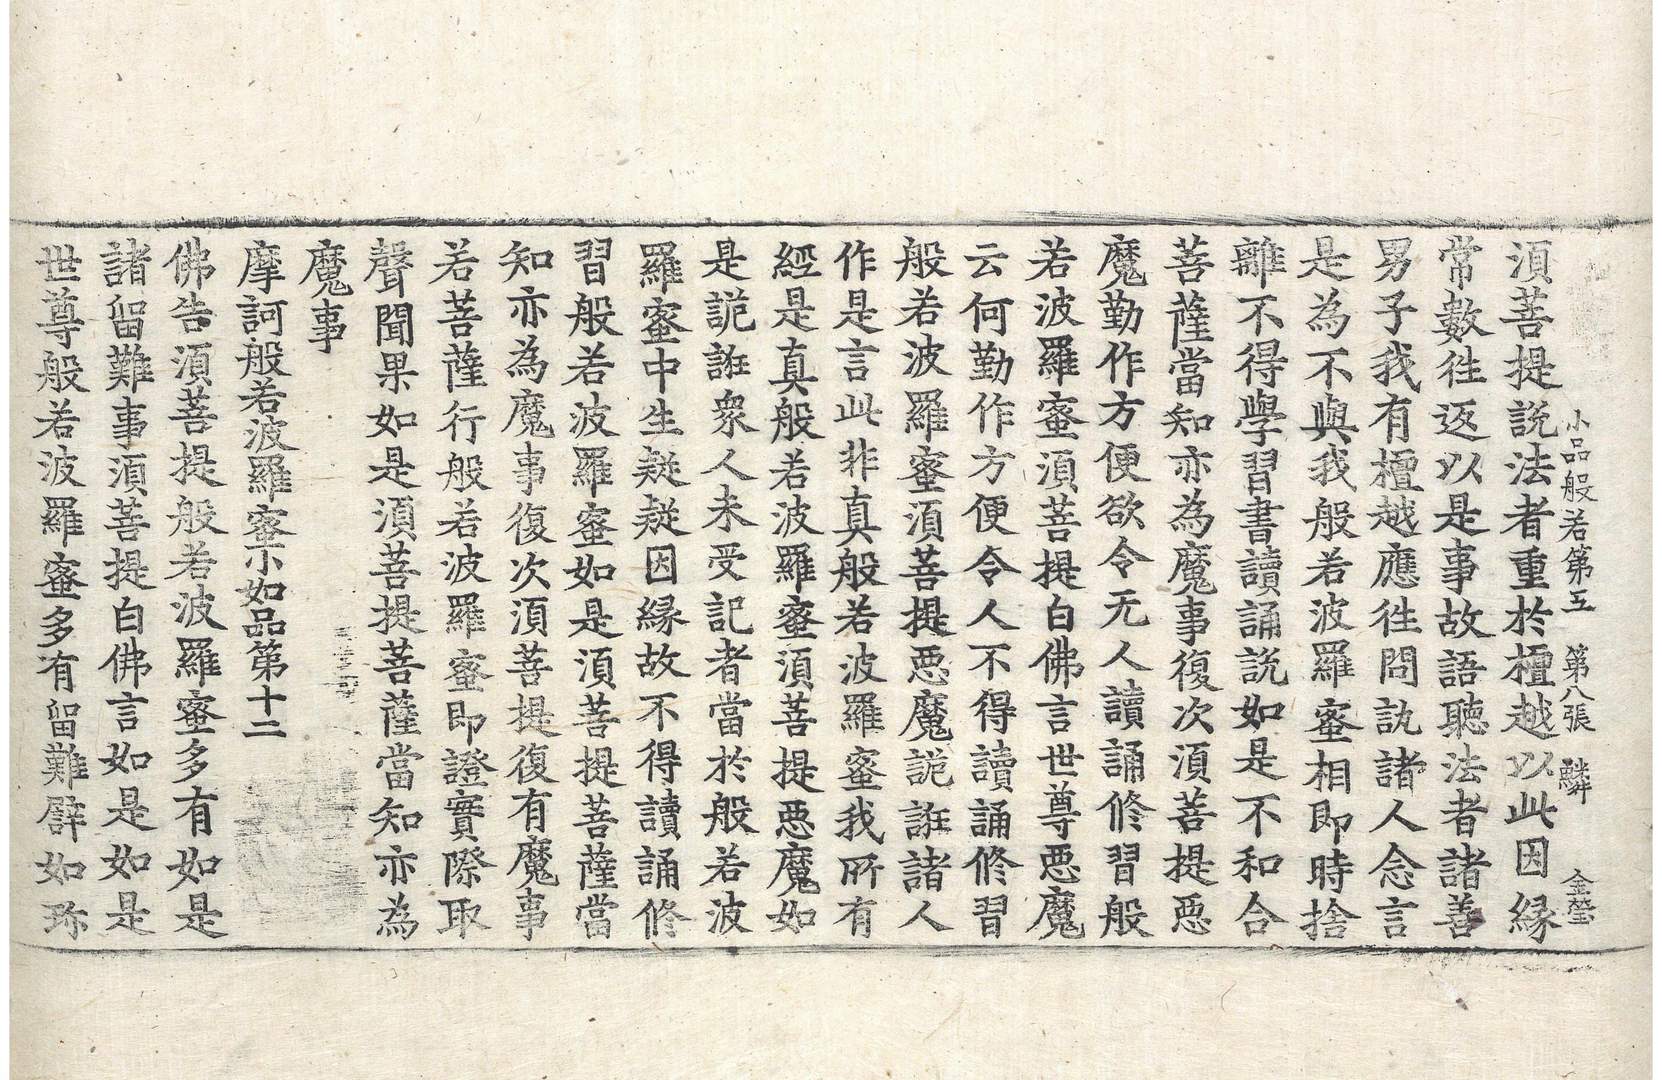 小品般若第五 第八張 鱗 金瑩
須菩提說法者重於檀越以此因緣
常數往返以是事故語聽法者諸善
男子我有檀越應往問訊諸人念言
是為不與我般若波羅蜜相即時捨
離不得學習書讀誦說如是不和合
菩薩當知亦為魔事復次須菩提惡
魔勤作方便欲令无人讀誦修習般
若波羅蜜須菩提白佛言世尊惡魔
云何勤作方便令人不得讀誦修習
般若波羅蜜須菩提惡魔詭誑諸人
作是言此非真般若波羅蜜我所有
經是真般若波羅蜜須菩提惡魔如
是詭誑衆人未受記者當於般若波
羅蜜中生疑疑因緣故不得讀誦修
習般若波羅蜜如是須菩提菩薩當
知亦為魔事復次須菩提復有魔事
若菩薩行般若波羅蜜即證實際取
聲聞果如是須菩提菩薩當知亦為
魔事
摩訶般若波羅蜜小如品第十二
佛告須菩提般若波羅蜜多有如是
諸留難事須菩提白佛言如是如是
世尊般若波羅蜜多有留難譬如珎